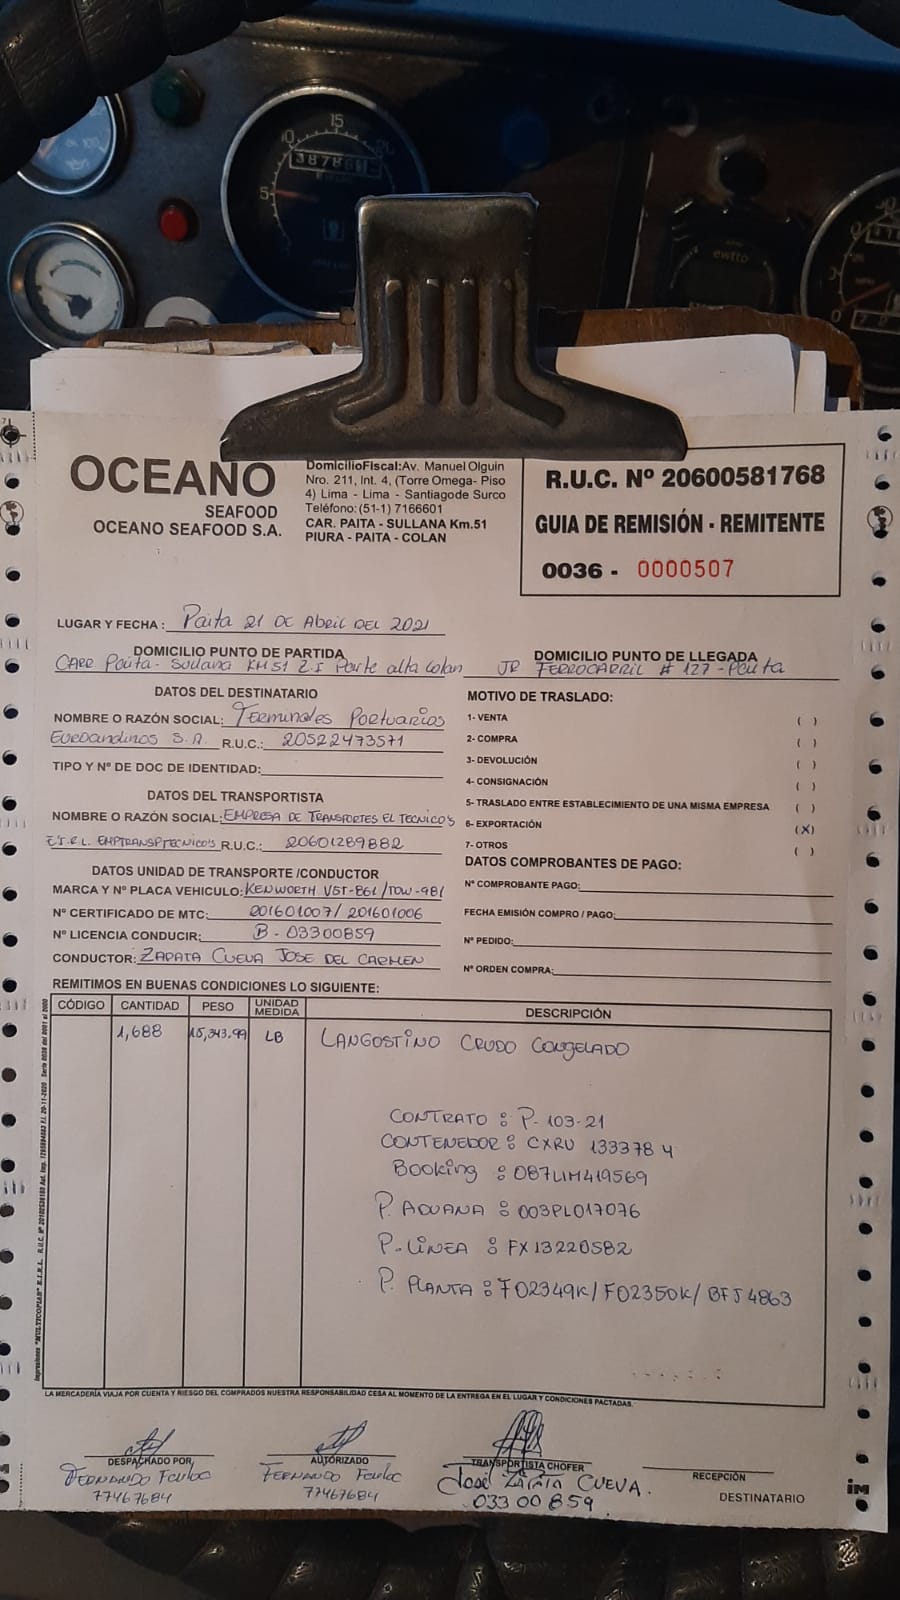 OCEANO
SEAFOOD
OCEANO SEAFOOD S.A.
DomicilioFiscal:Av. Manuel Olguin
Nro. 211, Int. 4, (Torre Omega- Piso
4) Lima - Lima - Santiagode Surco
Teléfono:(51-1) 7166601
CAR. PAITA - SULLANA Km.51
PIURA - PAITA - COLAN
R.U.C. Nº 20600581768
GUIA DE REMISIÓN - REMITENTE
0036 - 0000507
LUGAR Y FECHA : Paita 21 DE Abril DEL 2021
DOMICILIO PUNTO DE PARTIDA
CARR Paita- Sullana KM 51 Z.I Parte alta Colan
DOMICILIO PUNTO DE LLEGADA
JR FERROCARRIL # 127 - Paita
DATOS DEL DESTINATARIO
NOMBRE O RAZÓN SOCIAL: Terminales Portuarios
Euroandinos S.A. R.U.C.: 20522473571
TIPO Y Nº DE DOC DE IDENTIDAD:
DATOS DEL TRANSPORTISTA
NOMBRE O RAZÓN SOCIAL: EMPRESA DE TRANSPORTES EL TECNICO'S
E.I.R.L. EMPTRANSPTECNICO'S R.U.C.: 20601289882
DATOS UNIDAD DE TRANSPORTE /CONDUCTOR
MARCA Y Nº PLACA VEHICULO: KENWORTH V5T-861/TOW-981
Nº CERTIFICADO DE MTC: 201601007/ 201601006
Nº LICENCIA CONDUCIR: B - 03300859
CONDUCTOR: ZAPATA CUEVA JOSE DEL CARMEN
MOTIVO DE TRASLADO:
1- VENTA ( )
2- COMPRA ( )
3- DEVOLUCIÓN ( )
4- CONSIGNACIÓN ( )
5- TRASLADO ENTRE ESTABLECIMIENTO DE UNA MISMA EMPRESA ( )
6- EXPORTACIÓN (X)
7- OTROS ( )
DATOS COMPROBANTES DE PAGO:
Nº COMPROBANTE PAGO:
FECHA EMISIÓN COMPRO / PAGO:
Nº PEDIDO:
Nº ORDEN COMPRA:
REMITIMOS EN BUENAS CONDICIONES LO SIGUIENTE:
CÓDIGO CANTIDAD PESO UNIDAD MEDIDA DESCRIPCIÓN
1,688 15,343.99 LB LANGOSTINO CRUDO CONGELADO
CONTRATO : P- 103-21
CONTENEDOR : CXRU 133378 4
Booking : 087LIM419569
P. ADUANA : 003PL017076
P-LINEA : FX13220582
P. PLANTA : F02349K/F02350K/ BFJ4863
LA MERCADERÍA VIAJA POR CUENTA Y RIESGO DEL COMPRADOS NUESTRA RESPONSABILIDAD CESA AL MOMENTO DE LA ENTREGA EN EL LUGAR Y CONDICIONES PACTADAS.
DESPACHADO POR
FERNANDO
77467684
AUTORIZADO
FERNANDO
77467684
TRANSPORTISTA CHOFER
José ZAPATA CUEVA.
03300859
RECEPCIÓN
DESTINATARIO
im
5
10
15
ewtto